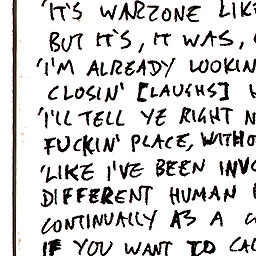 'IT'S WARZONE LIKE
BUT IT'S, IT WAS,
'I'M ALREADY LOOKIN
CLOSIN' [LAUGHS]
'I'LL TELL YE RIGHT N
FUCKIN' PLACE, WITHO
'LIKE I'VE BEEN INVO
DIFFERENT HUMAN
CONTINUALLY AS A
IF YOU WANT TO CAL